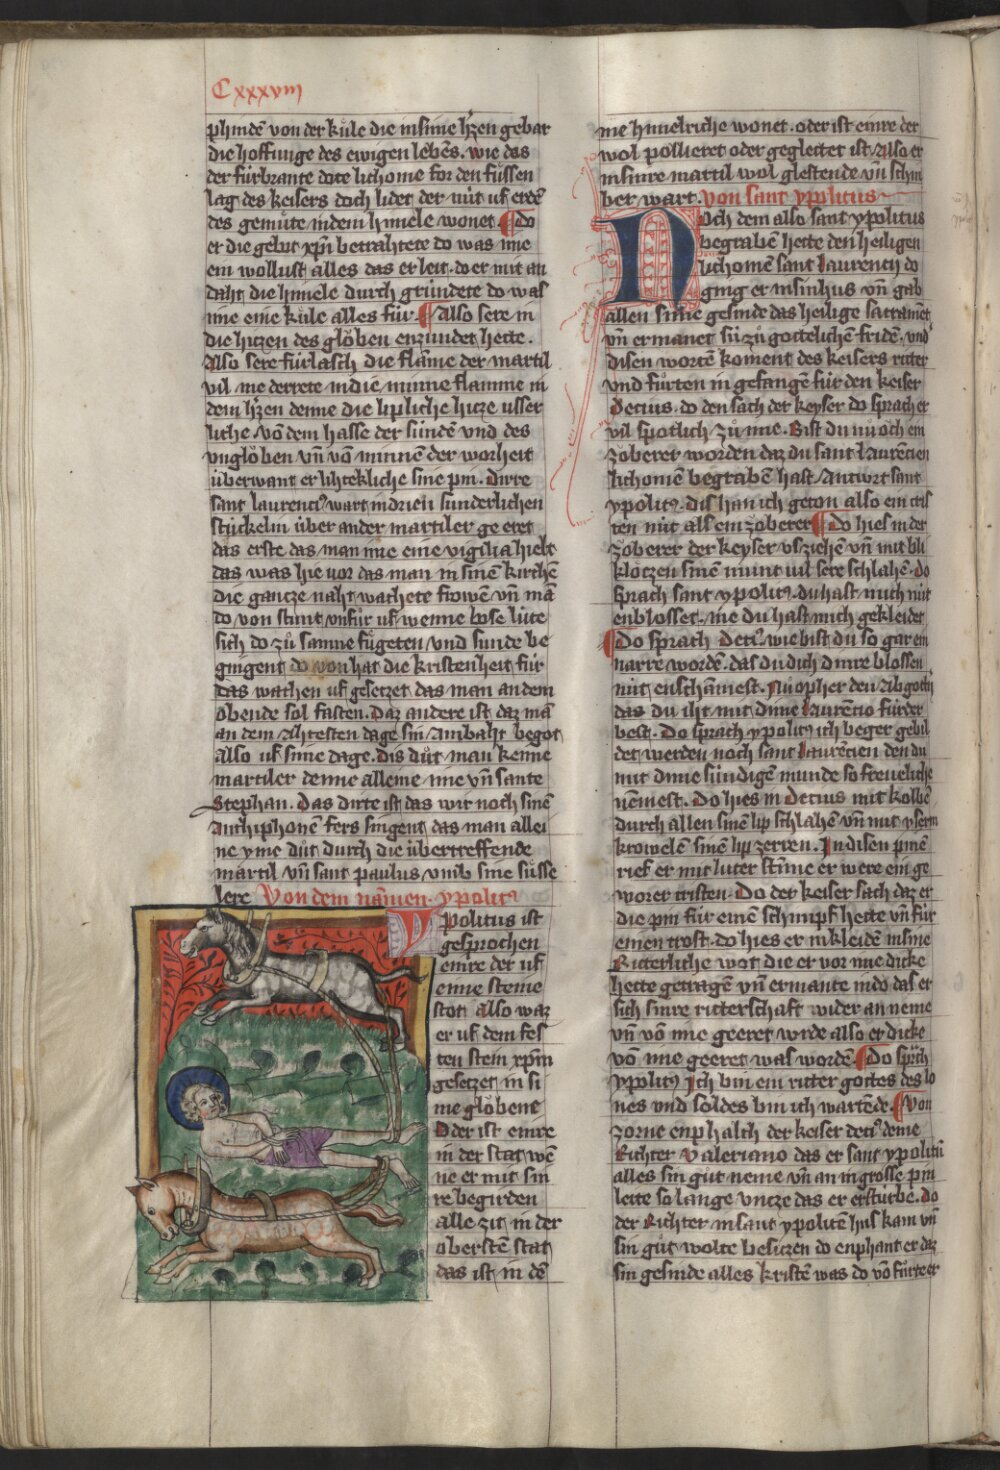 Cxxxviij
phindē von der kůle die in sinne hꝛ̄zen gebar
die hoffnnge des ewigen lebēs. wie das
der fúrbrante dote lichome for den fússen
lag des keisers doch lidet der nút uf erdē
des gemůte in dem himele wonet ¶ do
er die gebot xp̄i betrahtete do was ime
ein wollust alles das er leit. do er mit an
daht die himele durch gründete do was
ime eine kůle alles fúr. ¶ Also sere in
die hitzen des glöben enzundet hette.
Also sere fúrlasch die flāme der martil
vil me derrete in die minne flamme in
dem hꝛ̄zen denne die lipliche hitze usser
liche. vō dem hasse der súndē vnd des
vnglöben vn̄ vō minnen der worheit
úberwant er lihtekliche sine pin. Dirre
sant laurenciꝰ wart in drien sunderlichen
stúckelin úber ander martiler ge eret
das erste das man ime eine vigilia hielt
das was hie vor das man in sinē kirchē
die gantze naht wachete frowen vn̄ mā
do von stunt vnfúr uf wenne bose lúte
sich do zů samne fůgeten vnd sunde be
gingent do von hat die kristenheit fúr
das wachen uf gesetzet das man an dem
obende sol fasten. Daz andere ist daz mā
an dem ahtesten dage sin ambaht begot
also uf sinne dage. Dis důt man keime
martiler denne alleine ime vn̄ sante
Stephan. Das dirte ist das wir noch sinē
Antiphonē fers singent das man allei
ne yme důt durch die úbertreffende
martil vn̄ sant paulus vmb sine sússe
lere Von dem nāmen ypolitꝰ
Ypolitus ist
gesprochen
einre der uf
eime steine
stot also waz
er uf dem fes
ten stein xp̄m
gesetzet in si
me glöbent
Oder ist einre
in der stat wē
ne er mit sin
re begirden
alle zit in der
oberstē stat
das ist in dē
me himelriche wonet. oder ist einre der
wol pollieret oder geglettet ist Also er
in sinre martil wol glestende vn̄ schin
ber wart. Von sant ypolitus
Noch dem also sant ypolitus
begrabē hette den heiligen
lichomē sant laurencij do
ging er in sin hus vn̄ gab
allen sinē gesinde das heilige sacramēt
vn̄ ermanet sú zů gottelichē fridē. vnd
disen wortē koment des keisers ritter
vnd fůrten in gefangē fúr den keiser
Decius. do den sach der keyser do sprach er
vil spotlich zů ime. Bist du nu och ein
zöberer worden daz du sant laurēcien
lichomē begraben hast Antwort sant
ypolitꝰ. dis han ich geton also ein cris
ten nút als ein zöberer ¶ Do hies in der
zöberer der keyser us ziehen vn̄ mit bli
klötzen sinē munt vil sere schlahē. do
sprach sant ypolitꝰ. du hast mich nút
enblösset. me du hast mich gekleidet
¶ Do sprach deciꝰ. wie bist du so gar ein
narre wordē. das du dich dinre blossen
nút enschāmest. Nu opher den abgotē
das du iht mit dime laurēcio fúrder
best. Do sprach ypolitꝰ ich beger gebil
det werden noch sant laurēcien den du
mit dime súndigē munde so freueliche
nēmest. Do hies in decius mit kolbē
durch allen sinē lip schlahē vn̄ mit yserin
krowelē sinē lip zerren. In disen pinē
rief er mit luter stīme er were ein ge
worer cristen. Do der keiser sach daz er
die pin fúr einē schimpf hette vn̄ fúr
einen trost. do hies er in kleidē in sine
Ritterliche wot die er vor me dicke
hette getragē vn̄ ermante in do das er
sich sinre ritterschaft wider an neme
vn̄ vō ime geeret wrde also er dicke
vō ime geeret was wordē. ¶ Do sprach
ypolitꝰ Ich bin ein ritter gottes des lo
nes vnd soldes bin ich wartēde. ¶ Von
zorne enphalch der keiser deciꝰ deme
Richter valeriano das er sant ypolitū
alles sin gůt neme vn̄ an in grosse pin
leite so lange vncze das er ersturbe. Do
der Richter in sant ypolitē hus kam vn̄
sin gůt wolte besitzen do enphant er daz
sin gesinde alles kristē was do vō fůrte er